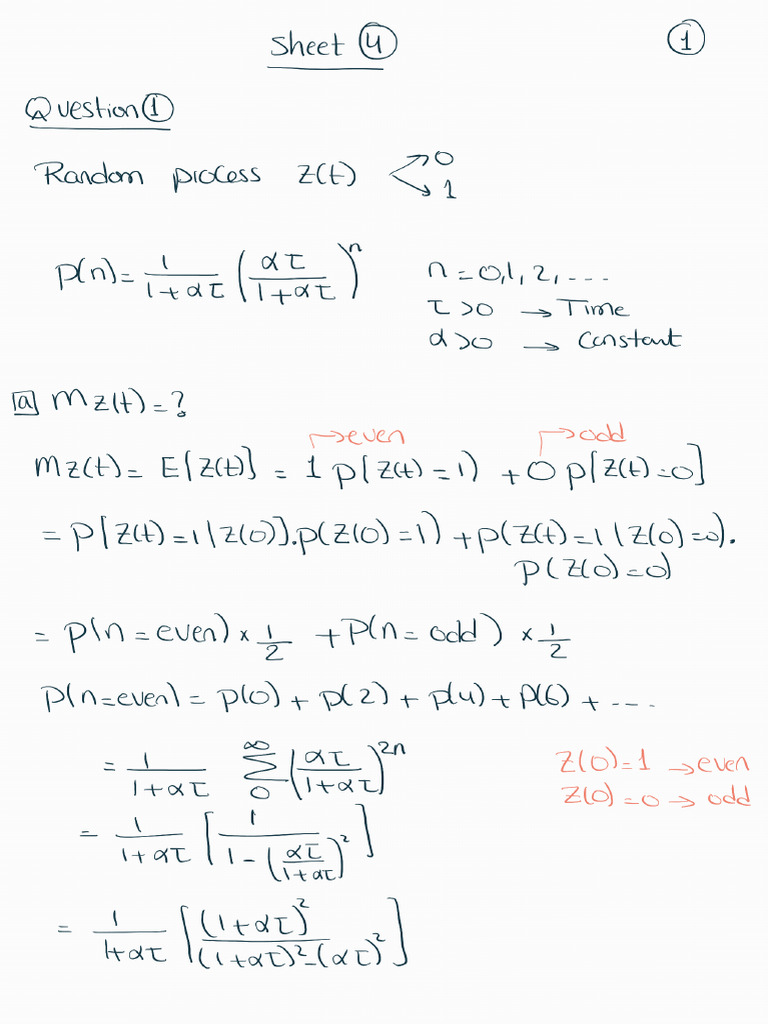 Sheet ④ ①
Question ①
Random process Z(t) < 0
1
P(n) = 1/(1+ατ) (ατ/(1+ατ))^n n = 0, 1, 2, ...
τ > 0 → Time
α > 0 → Constant
[a] m z(t) = ?
→ even → odd
m z(t) = E[Z(t)] = 1 P[Z(t) = 1) + 0 P[Z(t) = 0]
= P[Z(t) = 1 | Z(0)].P(Z(0) = 1) + P(Z(t) = 1 | Z(0) = 0).
P(Z(0) = 0)
= P(n = even) × 1/2 + P(n = odd) × 1/2
P(n = even) = P(0) + P(2) + P(4) + P(6) + ....
= 1/(1+ατ) ∑_0^∞ (ατ/(1+ατ))^2n
Z(0) = 1 → even
Z(0) = 0 → odd
= 1/(1+ατ) [1/(1 - (ατ/(1+ατ))^2)]
= 1/(1+ατ) [(1+ατ)^2/((1+ατ)^2 - (ατ)^2)]